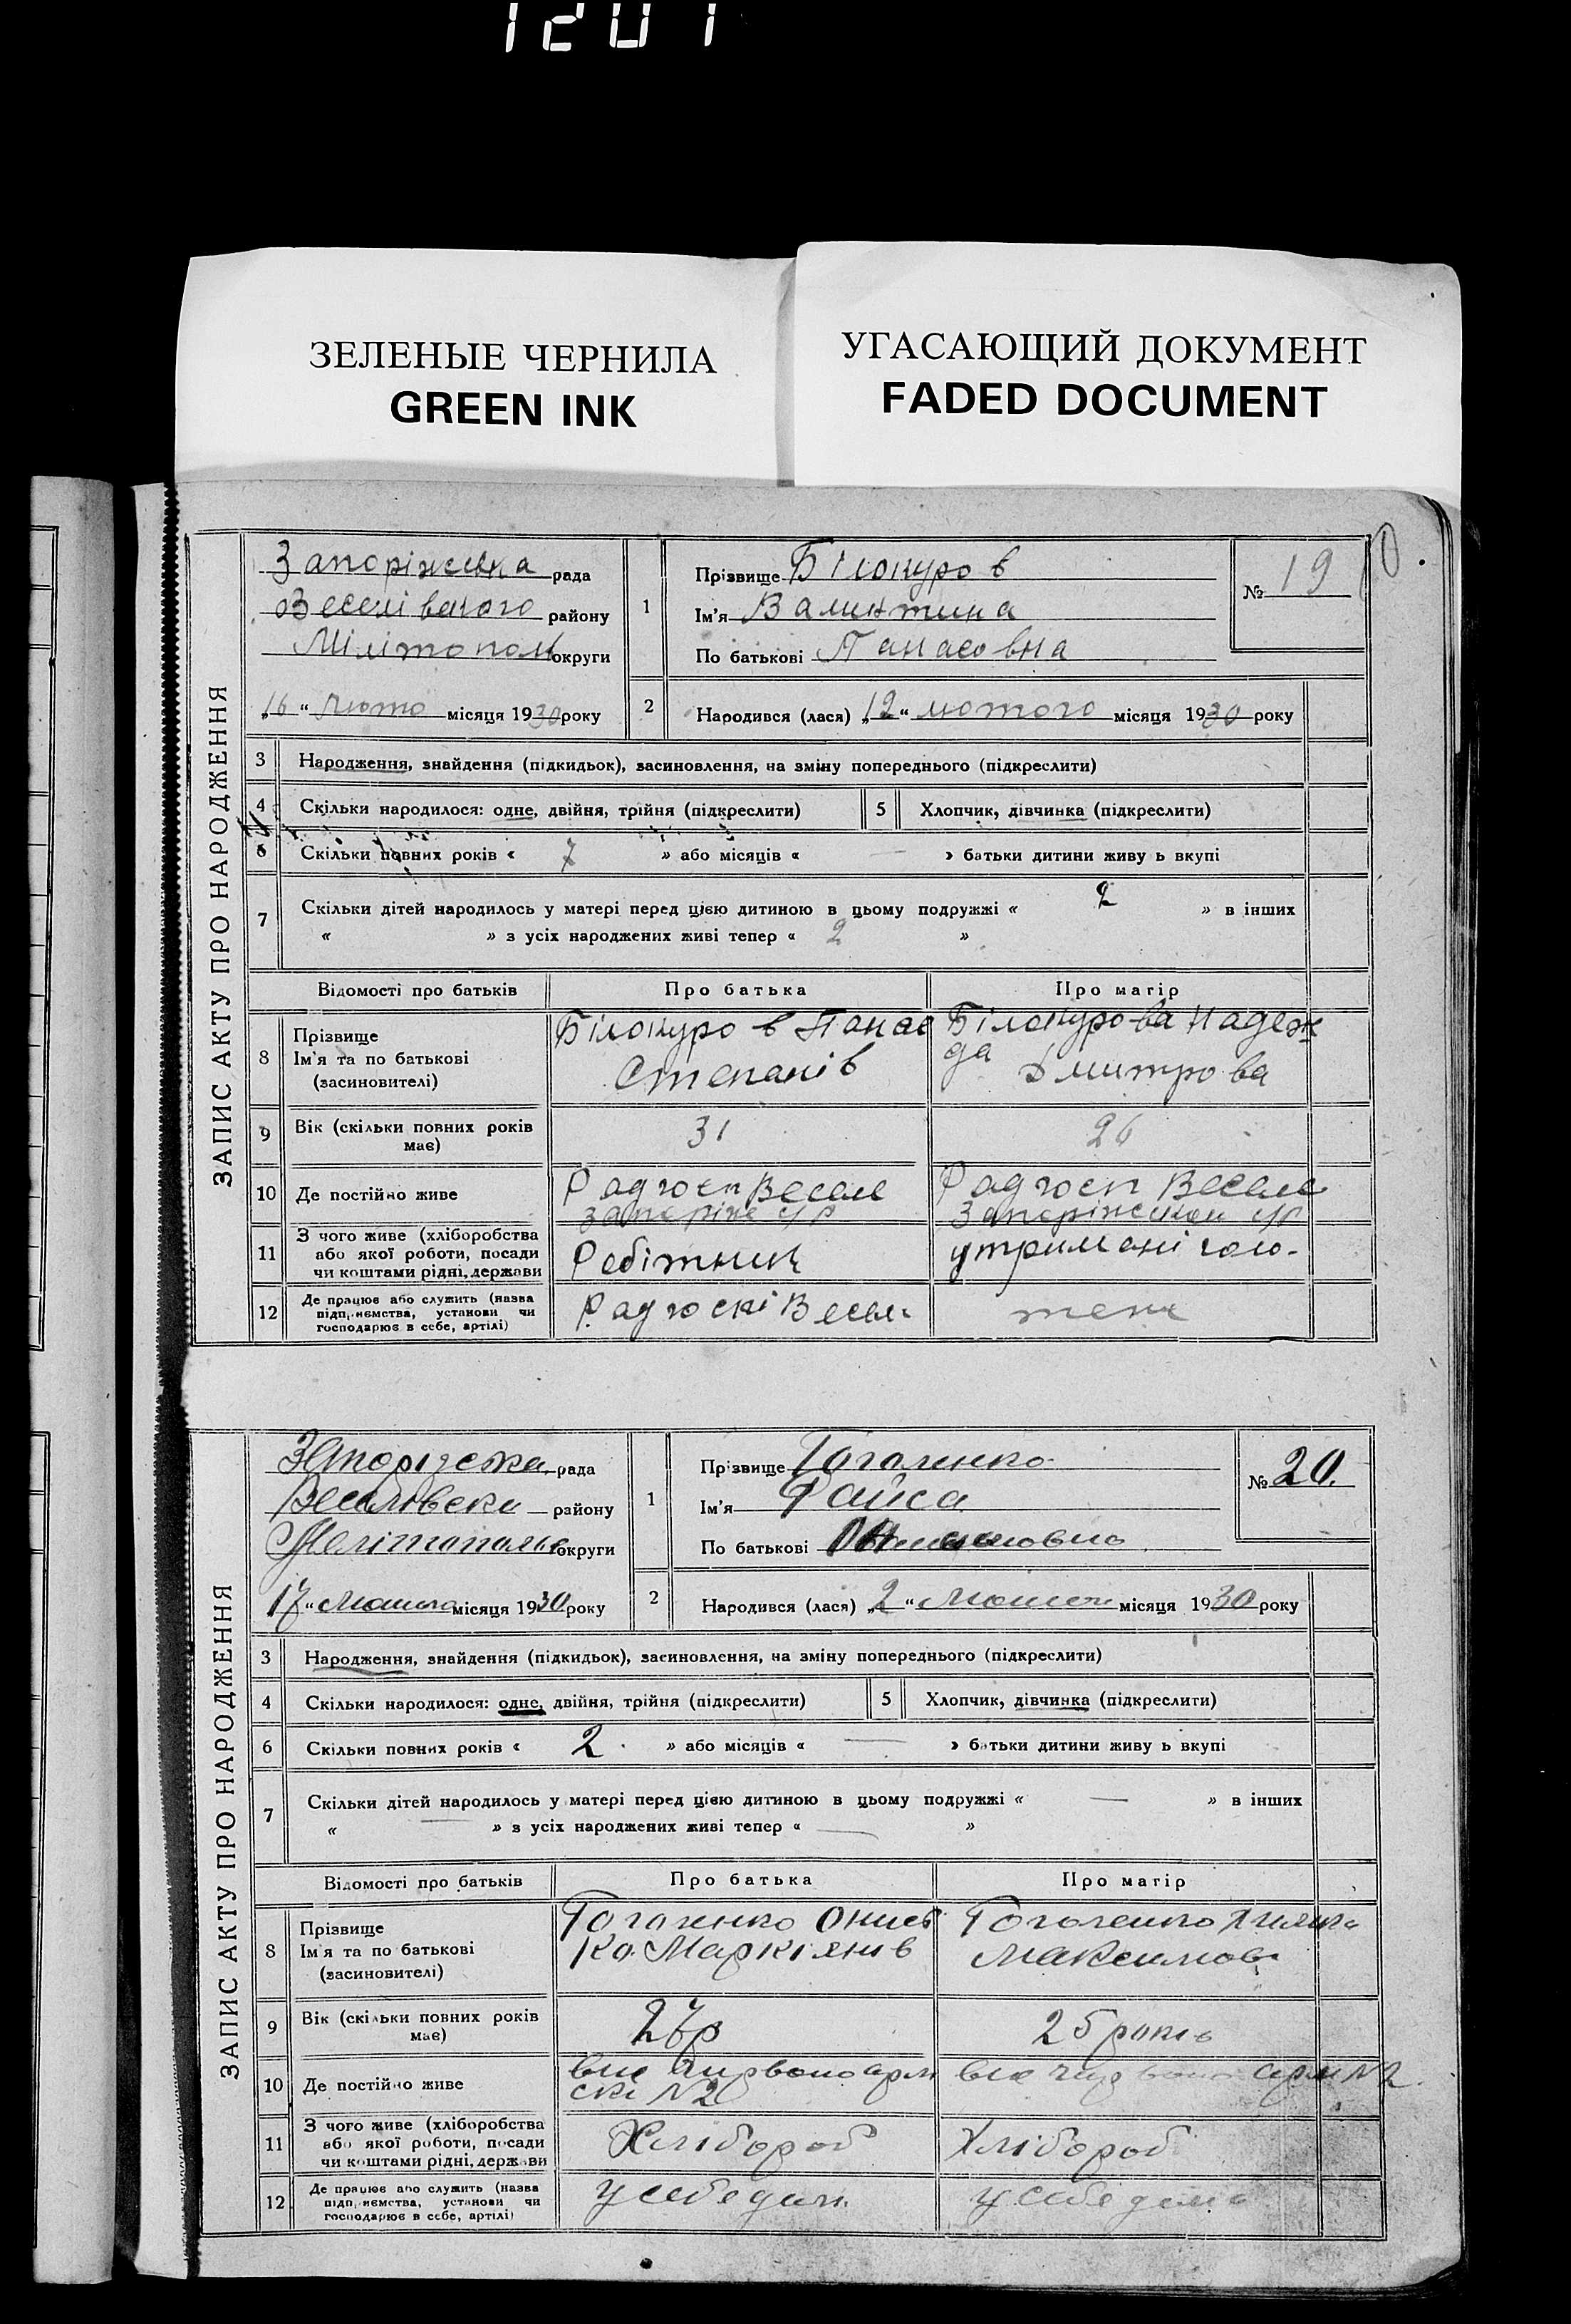 1201
ЗЕЛЕНЫЕ ЧЕРНИЛА
GREEN INK
УГАСАЮЩИЙ ДОКУМЕНТ
FADED DOCUMENT
ЗАПИС АКТУ ПРО НАРОДЖЕННЯ
Запоріжська рада
району
Мілітопол округи
„16“ Люто місяця 1930 року
1
Прізвище Білокуров
Ім'я Валинтина
По батькові Панасовна
№ 19
2
Народився (лася) „12“ лютого місяця 1930 року
3 Народження, знайдення (підкидьок), засиновлення, на зміну попереднього (підкреслити)
4 Скільки народилося: одне, двійня, трійня (підкреслити) 5 Хлопчик, дівчинка (підкреслити)
6 Скільки повних років « 7 » або місяців « — » батьки дитини живу ь вкупі
7 Скільки дітей народилось у матері перед цією дитиною в цьому подружжі « 2 » в інших
« » з усіх народжених живі тепер « 2 »
Відомості про батьків Про батька Про матір
8 Прізвище Ім'я та по батькові (засиновителі)
Білокуров Панас
Степанів
Білокурова Надеж
да Дмитрова
9 Вік (скільки повних років має) 31 26
10 Де постійно живе
Радгосп Весели
Запоріж с/р
Радгосп Весели
с/р
11 З чого живе (хліборобства або якої роботи, посади чи коштами рідні, держави
Робітник
утримані
12 Де працює або служить (назва підприємства, установи чи господарює в себе, артілі)
ЗАПИС АКТУ ПРО НАРОДЖЕННЯ
рада
району
округи
17 “ місяця 1930 року
1
Прізвище Гоголенко
Ім'я Раиса
По батькові
№ 20.
2
Народився (лася) „2“ місяця 1930 року
3 Народження, знайдення (підкидьок), засиновлення, на зміну попереднього (підкреслити)
4 Скільки народилося: одне, двійня, трійня (підкреслити) 5 Хлопчик, дівчинка (підкреслити)
6 Скільки повних років « 2 » або місяців « — » батьки дитини живу ь вкупі
7 Скільки дітей народилось у матері перед цією дитиною в цьому подружжі « — » в інших
« — » з усіх народжених живі тепер « — »
Відомості про батьків Про батька Про матір
8 Прізвище Ім'я та по батькові (засиновителі)
Гоголенко Онись
ко Маркіянив
Гоголенко
Максимов
9 Вік (скільки повних років має) 27р 25 років
10 Де постійно живе
№2
№2
11 З чого живе (хліборобства або якої роботи, посади чи коштами рідні, держави
Хлібороб Хлібороб
12 Де працює або служить (назва підприємства, установи чи господарює в себе, артілі)
у себе
у себе